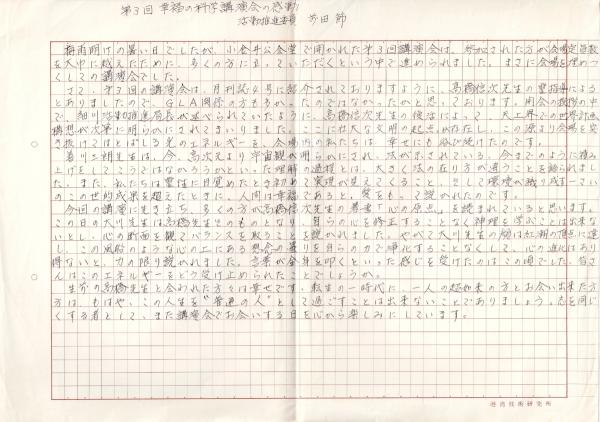 第3回 幸福の科学講演会の感動
活動推進委員 芳田 節
梅雨明けの暑い日でしたが、小金井公会堂で開かれた第3回講演会は、参加された方が会場定員数
を大巾に越えたために、多くの方に立っていただくという中で進められました。まさに会場を埋めつ
くしての講演会でした。
さて、第3回の講演会は、月刊誌4号に紹介されておりますように、高橋信次先生の霊指導による
とありましたので、GLA関係の方も多かったのではなかったかと思っております。開会の挨拶の中
で、細川活動推進局長が述べられていたように、高橋信次先生の後をついで、天上界での世界計画
構想が次第に明らかにされてまいりました。ここに壮大な文明の起点が存在し、この源より会場を突
き抜けてほとばしる光のエネルギーを、会場内の私たちは 幸せにも浴び続けたのです。
善川三朗先生は、今、高次元より宇宙観が明らかにされ、法が下されている、今までのように積み
上げをしてこうではなかろうかといった理解の過程とは、大きく法の在り方が違うことを語られまし
た。また、私たちは霊性に目覚めたとき初めて実理が見えてくること、そして環境が織り成す一さい
のこの世的成果を超えたときに、人間は幸福であると、愛をもって説かれたのです。
今回の講演に先き立ち、多くの方が高橋信次先生の著書「心の原点」を読まれていると思います。
この日の大川先生は高橋先生そのものとなり、自らの心を修正することなく神理を学ぶことは出来な
いとし、心の断面を観てバランスを取ることを説かれました。やがて大川先生の顔は紅潮の頂点に達
し、この風船のような心の上にある想念の曇りを自らの力で浄化することなくして、心の進化はあり
得ないと、力の限り説れました。言葉が全身を叩くといった感じを受けたのはこの頃でした。皆さ
んはこのエネルギーをどう受け止められたことでしょうか。
生前の高橋先生と会われた方々は幸せです。転生の一時代に、一人の超如来の方とお会い出来た方
方は、もはや、この人生を“普通の人”として過ごすことは出来ないことでありましょう。志を同じ
くする者として、また講演会でお会いする日を心から楽しみにしています。
港湾技術研究所